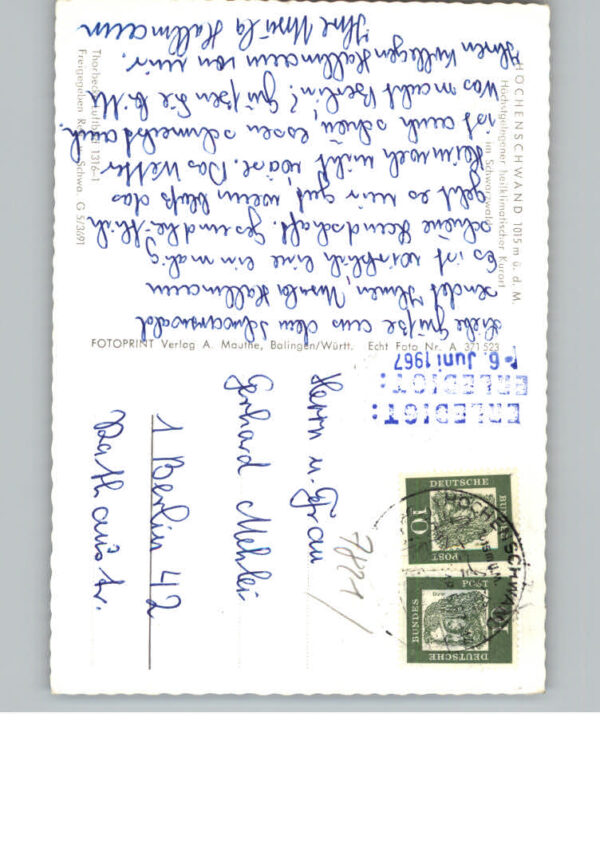 HÖCHENSCHWAND 1015 m ü. d. M.
Höchstgelegener heilklimatischer Kurort
im Schwarzwald
Liebe Grüße aus dem Schwarzwald
sendet Ihnen, Ursula Hallmann
Es ist wirklich eine einmalig
schöne Landschaft. Gesundheitlich
geht es mir gut, wenn bloß das
Heimweh nicht wäre. Das Wetter
ist auch schön, essen schmeckt auch.
Was macht Berlin? Grüßen Sie bitte
Ihren Kollegen Hallmann von mir.
Ihre Ursula Hallmann
Thorbecke-Luftbild 1316-1
Freigegeben Schwa. G 5/3691
FOTOPRINT Verlag A. Mauthe, Balingen/Württ. Echt Foto Nr. A 371 523
ERLEDIGT:
ERLEDIGT:
-6. Juni 1967
DEUTSCHE
BUNDES
POST
10
DEUTSCHE
BUNDES
POST
HÖCHENSCHWAND
7821
Herrn u. Frau
Gerhard
1 Berlin 42
Rathausstr.